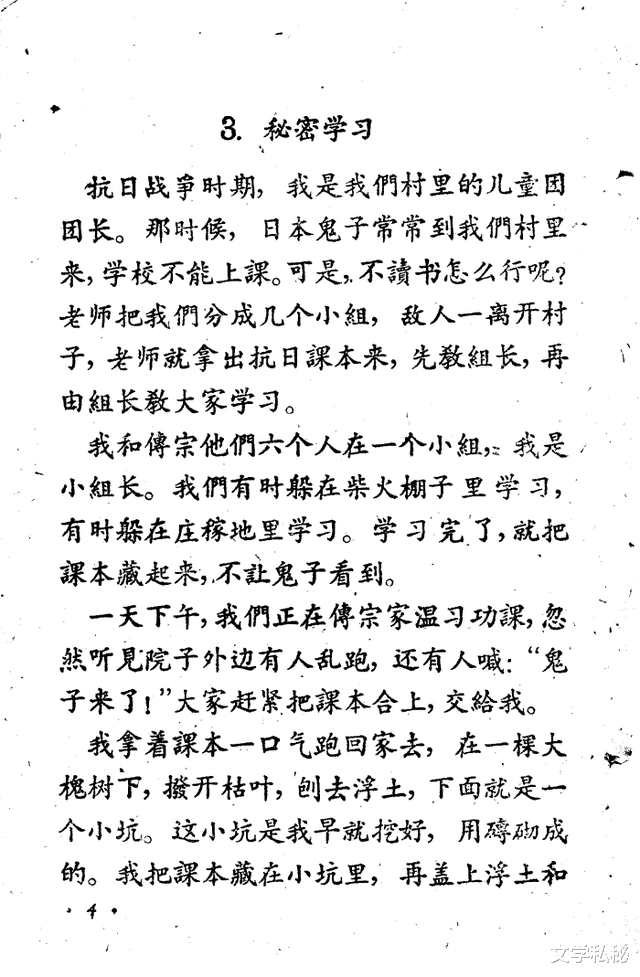 3. 秘密学习
抗日战爭时期，我是我們村里的儿童团
团长。那时候，日本鬼子常常到我們村里
来，学校不能上課。可是，不讀书怎么行呢？
老师把我們分成几个小組，敌人一离开村
子，老师就拿出抗日課本来，先敎組长，再
由組长敎大家学习。
我和傳宗他們六个人在一个小組，我是
小組长。我們有时躲在柴火棚子里学习，
有时躲在庄稼地里学习。学习完了，就把
課本藏起来，不让鬼子看到。
一天下午，我們正在傳宗家温习功課，忽
然听見院子外边有人乱跑，还有人喊：“鬼
子来了！”大家赶紧把課本合上，交給我。
我拿着課本一口气跑回家去，在一棵大
槐树下，撥开枯叶，刨去浮土，下面就是一
个小坑。这小坑是我早就挖好，用磚砌成
的。我把課本藏在小坑里，再盖上浮土和
· 4 ·
文学私秘